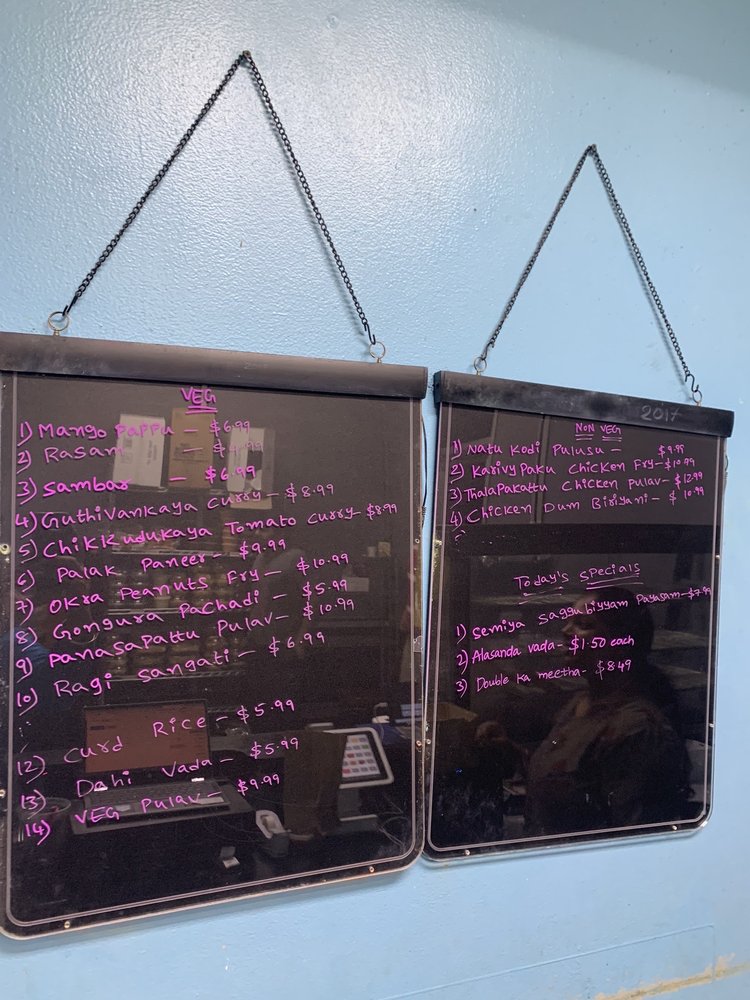 VEG
1) Mango Pappu - $6.99
2) Rasam - $4.99
3) Sambar - $6.99
4) Guthivankaya Curry - $8.99
5) Chikkudukaya Tomato Curry - $8.99
6) Palak Paneer - $9.99
7) Okra Peanuts Fry - $10.99
8) Gongura Pachadi - $5.99
9) Panasapattu Pulav - $10.99
10) Ragi Sangati - $6.99
12) Curd Rice - $5.99
13) Dahi Vada - $5.99
14) VEG Pulav - $9.99
2017
NON VEG
1) Natu Kodi Pulusu - $9.99
2) Karivypaku Chicken Fry - $10.99
3) Thalapakattu Chicken Pulav - $12.99
4) Chicken Dum Biriyani - $10.99
Today's Specials
1) Semiya Saggubiyyam Payasam - $7.99
2) Alasanda vada - $1.50 each
3) Double ka meetha - $8.49